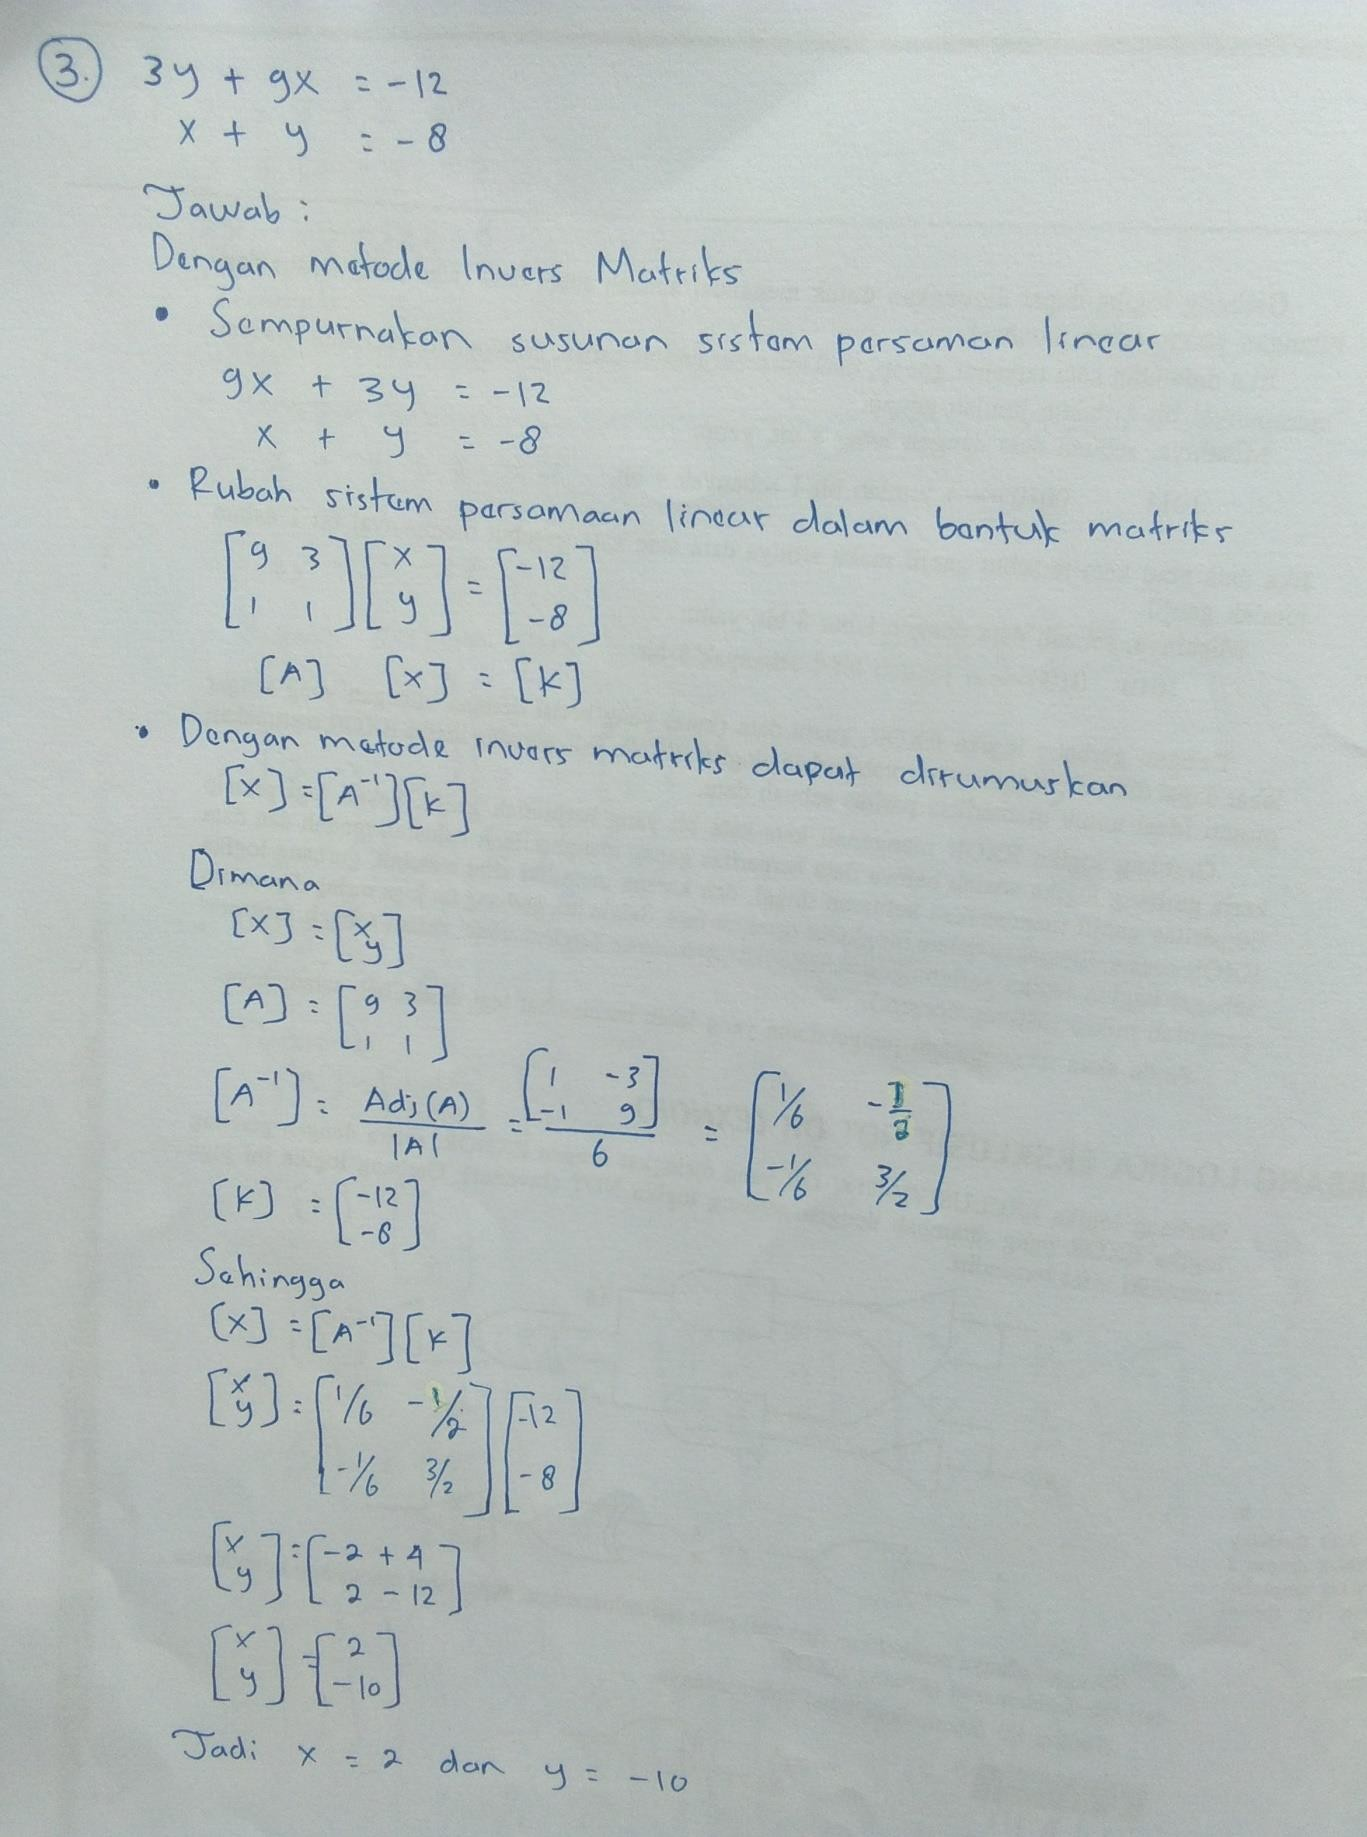 3. 3y + 9x = -12
x + y = -8
Jawab :
Dengan metode Invers Matriks
• Sempurnakan susunan sistem persaman linear
9x + 3y = -12
x + y = -8
• Rubah sistem persamaan linear dalam bentuk matriks
[9 3
1 1] [x
y] = [-12
-8]
[A] [x] = [K]
• Dengan metode invers matriks dapat dirumuskan
[x] = [A⁻¹][K]
Dimana
[x] = [x
y]
[A] = [9 3
1 1]
[A⁻¹] = Adj(A)/|A| = [1 -3
-1 9]/6 = [1/6 -1/2
-1/6 3/2]
[K] = [-12
-8]
Sehingga
[x] = [A⁻¹][K]
[x
y] = [1/6 -1/2
-1/6 3/2] [-12
-8]
[x
y] = [-2 + 4
2 - 12]
[x
y] = [2
-10]
Jadi x = 2 dan y = -10